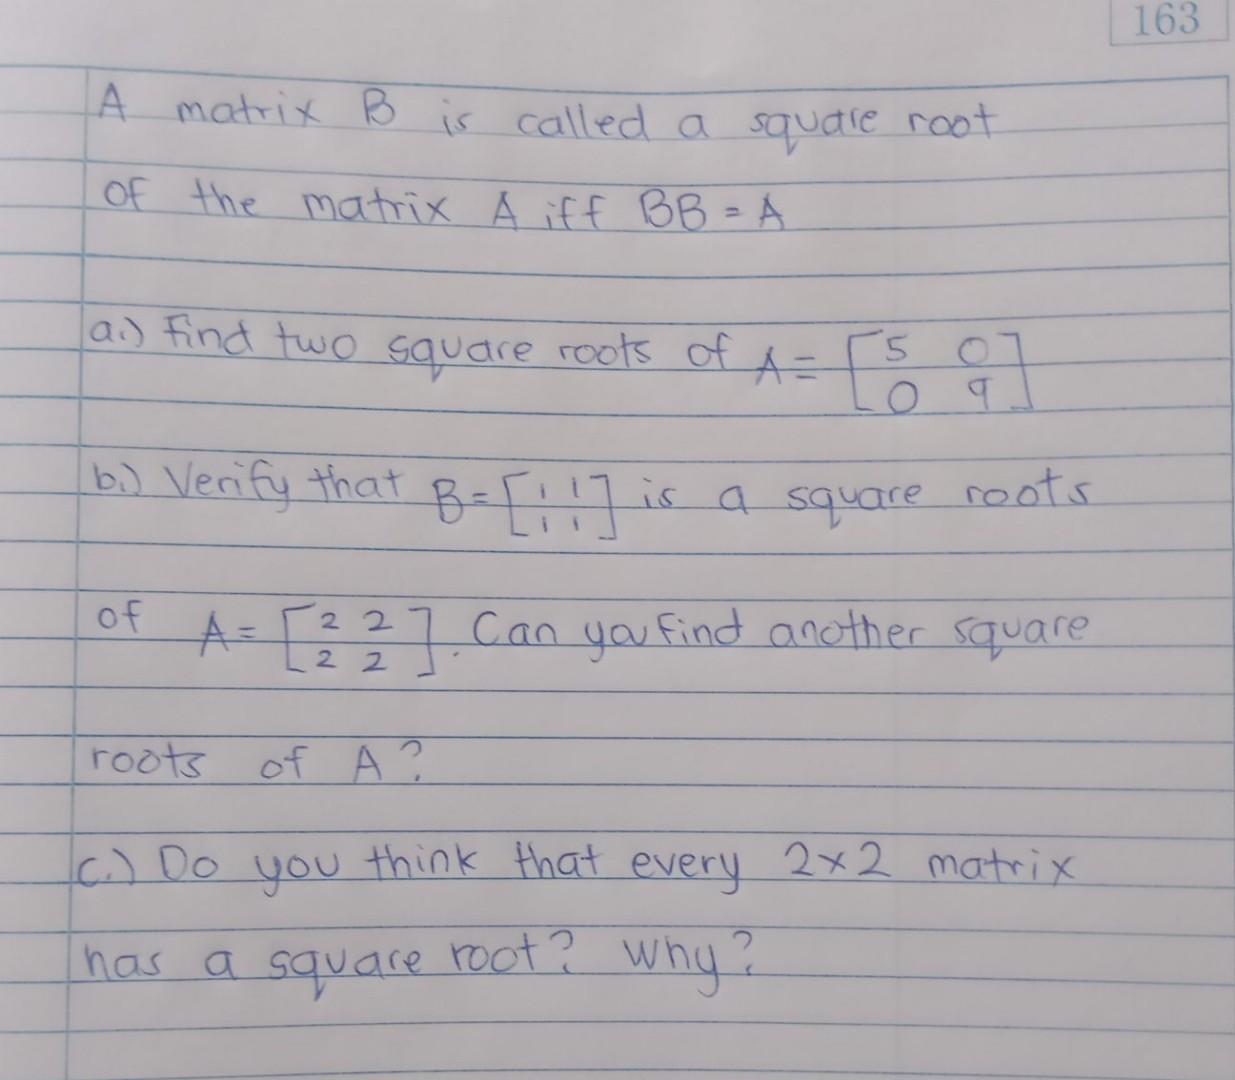 163
A matrix B is called a square root
of the matrix A iff BB = A
a.) Find two square roots of A = [5 0
0 9]
b.) Verify that B = [1 1
1 1] is a square roots
of A = [2 2
2 2]. Can you find another square
roots of A?
c.) Do you think that every 2x2 matrix
has a square root? Why?